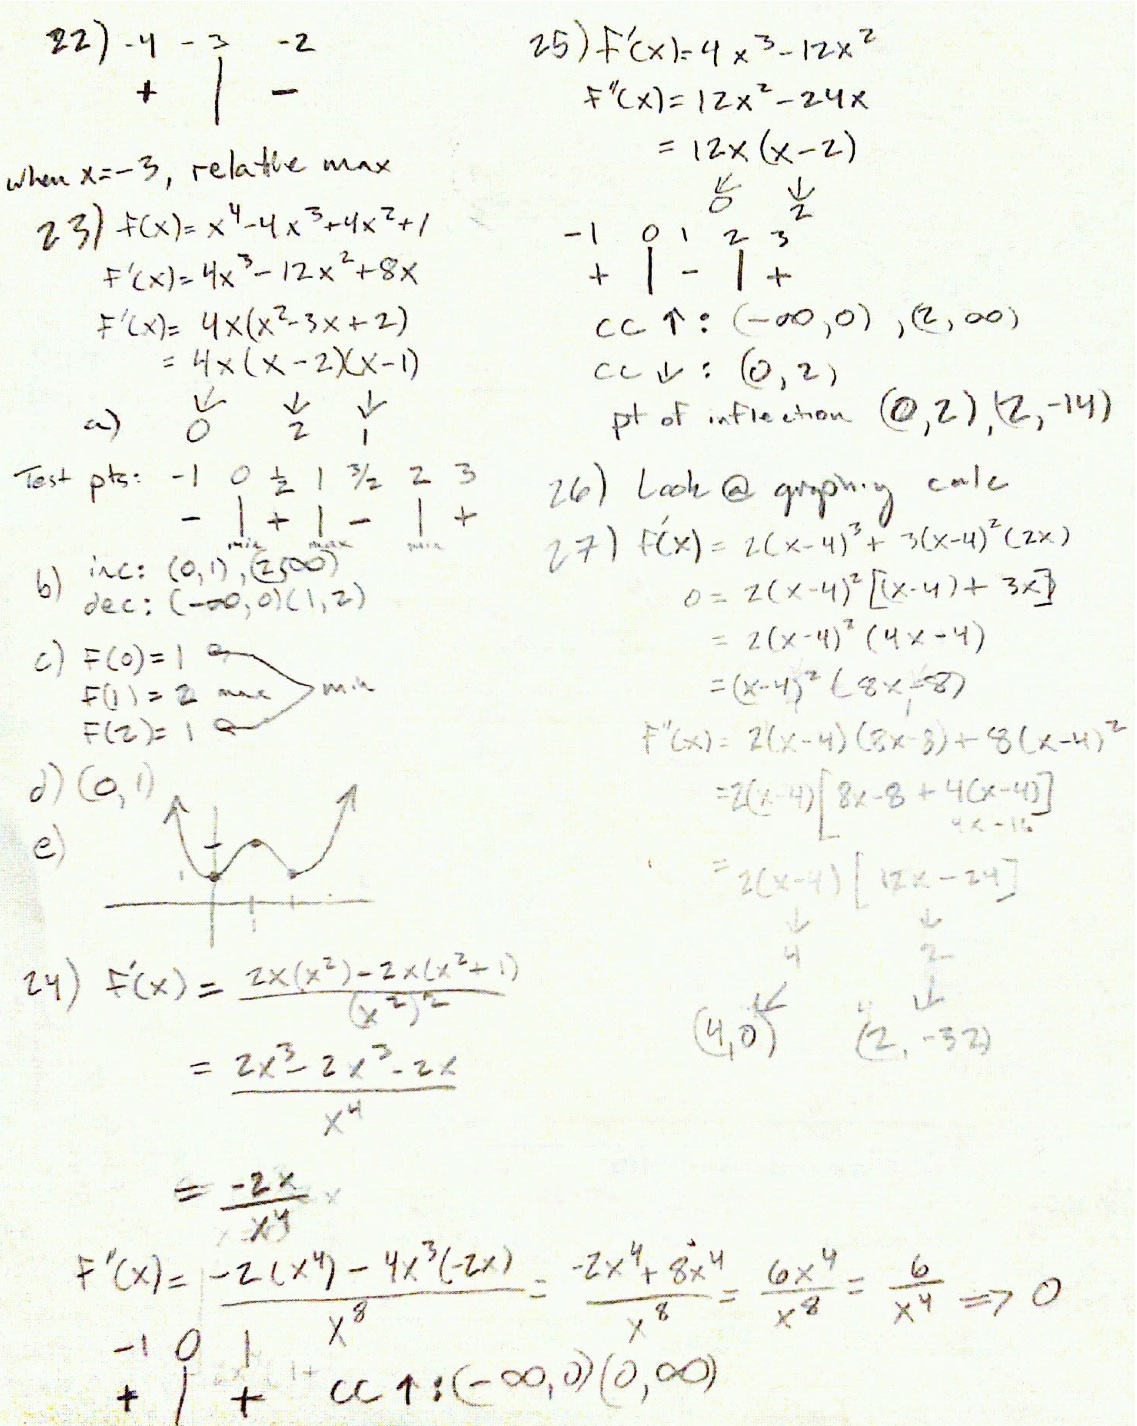 22) -4 -3 -2
+ | -
when x=-3, relative max
23) F(x)= x⁴-4x³+4x²+1
F'(x)= 4x³-12x²+8x
F'(x)= 4x(x²-3x+2)
= 4x(x-2)(x-1)
↓ ↓ ↓
a) 0 2 1
Test pts: -1 0 ½ 1 3/2 2 3
- | + | - | +
min max min
b) inc: (0,1),(2,∞)
dec: (-∞,0)(1,2)
c) F(0)=1
F(1)=2 max min
F(2)=1
d) (0,1)
e)
24) F'(x) = 2x(x²)-2x(x²+1)
(x²)²
= 2x³-2x³-2x
x⁴
= -2x
x⁴
F"(x)= -2(x⁴)-4x³(-2x) = -2x⁴+8x⁴ = 6x⁴ = 6 => 0
x⁸ x⁸ x⁸ x⁴
-1 0 1
+ | + cc ↑:(-∞,0)(0,∞)
25) F'(x)=4x³-12x²
F"(x)=12x²-24x
= 12x(x-2)
↓ ↓
0 2
-1 0 1 2 3
+ | - | +
cc ↑: (-∞,0),(2,∞)
cc ↓: (0,2)
pt of inflection (0,2),(2,-14)
26) Look @ graphing calc
27) F'(x) = 2(x-4)³+3(x-4)²(2x)
0 = 2(x-4)²[(x-4)+3x]
= 2(x-4)²(4x-4)
=(x-4)²(8x-8)
F"(x)= 2(x-4)(8x-8)+8(x-4)²
=2(x-4)[8x-8+4(x-4)]
4x-16
= 2(x-4)[12x-24]
↓ ↓
4 2
↙ ↓
(4,0) (2,-32)